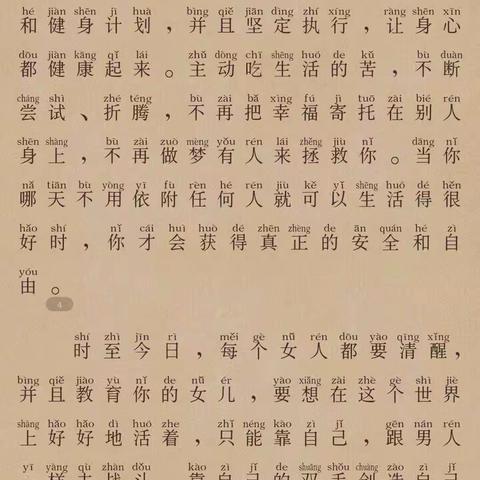 hé jiàn shēn jì huà bìng qiě jiān dìng zhí xíng ràng shēn xīn
和健身计划，并且坚定执行，让身心
dōu jiàn kāng qǐ lái zhǔ dòng chī shēng huó de kǔ bù duàn
都健康起来。主动吃生活的苦，不断
cháng shì zhé téng bù zài bǎ xìng fú jì tuō zài bié rén
尝试、折腾，不再把幸福寄托在别人
shēn shàng bù zài zuò mèng yǒu rén lái zhěng jiù nǐ dāng nǐ
身上，不再做梦有人来拯救你。当你
nǎ tiān bù yòng yī fù rèn hé rén jiù kě yǐ shēng huó dé hěn
哪天不用依附任何人就可以生活得很
hǎo shí nǐ cái huì huò dé zhēn zhèng de ān quán hé zì
好时，你才会获得真正的安全和自
yóu
由。
4
shí zhì jīn rì měi gè nǚ rén dōu yào qīng xǐng
时至今日，每个女人都要清醒，
bìng qiě jiào yù nǐ de nǚ ér yào xiǎng zài zhè gè shì jiè
并且教育你的女儿，要想在这个世界
shàng hǎo hǎo dì huó zhe zhǐ néng kào zì jǐ gēn nán rén
上好好地活着，只能靠自己，跟男人
yī yàng qù zhàn dǒu kào zì jǐ de shuāng shǒu chuàng zào zì jǐ
一样去战斗，靠自己的双手创造自己